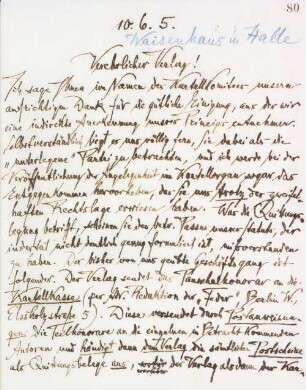 80
10. 6. 5.
Waisenhaus in Halle
Verehrlicher Verlag!
Ich sage Ihnen im Namen des Kartellkomitees unseren
aufrichtigen Dank für die gütliche Einigung, aus der wir
eine indirekte Anerkennung unserer Prinzipien entnehmen.
Selbstverständlich liegt es uns völlig fern, Sie dabei als die
„unterlegene" Partei zu betrachten, und ich werde bei der
Veröffentlichung der Angelegenheit im Kartellorgan sogar das
Entgegenkommen hervorheben, das Sie uns trotz der zweifel-
haften Rechtslage erwiesen haben. Was die Quittungs-
legung betrifft, scheinen Sie den betr. Passus unserer Statuten, der
indertat nicht deutlich genug formuliert ist, missverstanden
zu haben. Der bisher von uns geübte Geschäftsgang ist
folgender. Der Verlag sendet das Pauschalhonorar an die
Kartellkasse (per Adr. Redaktion der Feder, Berlin W.
Elssholzstraße 5). Diese versendet durch Postanweisun-
gen die Teilhonorare an die einzelnen in Betracht kommenden
Autoren und händigt dann dem Verlag die sämtlichen Postscheine
als Quittungsbelege aus, der Verlag alsdann der Kar-